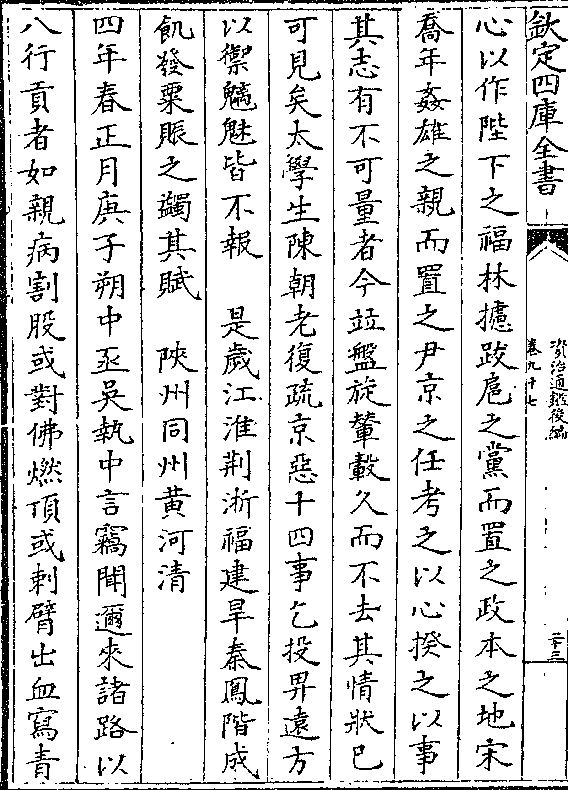 欽定四庫全書
資治通鑑後編
卷九十七
二十三
心以作陛下之福林攄跋扈之黨而置之政本之地宋
喬年姦雄之親而置之尹京之任考之以心揆之以事
其志有不可量者今竝盤旋輦轂久而不去其情狀已
可見矣太學生陳朝老復疏京惡十四事乞投畀遠方
以禦魑魅皆不報　是歲江淮荆浙福建旱秦鳳階成
飢發粟賑之蠲其賦　陜州同州黄河清
四年春正月庚子朔中丞吳執中言竊聞邇來諸路以
八行貢者如親病割股或對佛燃頂或刺臂出血寫青